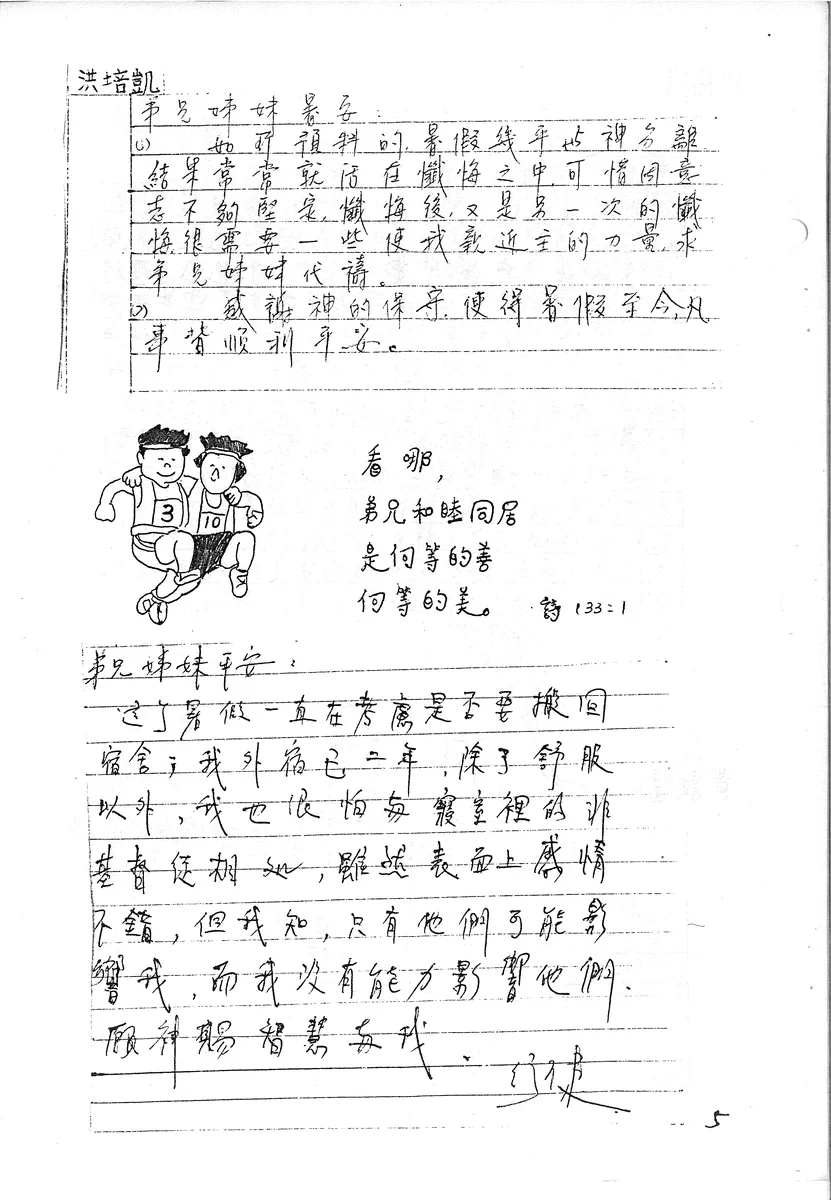 洪培凱
弟兄姊妹暑安:
(1) 如所預料的,暑假幾乎與神分離
結果常常就活在懺悔之中,可惜因意
志不夠堅定,懺悔後,又是另一次的懺
悔很需要一些使我親近主的力量,求
弟兄姊妹代禱。
(2) 感謝神的保守,使得暑假至今,凡
事皆順利平安。
3
10
看哪,
弟兄和睦同居
是何等的善
何等的美。 詩 133:1
弟兄姊妹平安:
這個暑假一直在考慮是否要搬回
宿舍,我外宿已二年,除了舒服
以外,我也很怕與寢室裡的非
基督徒相处,雖然表面上感情
不錯,但我知,只有他們可能影
響我,而我沒有能力影響他們.
願神賜智慧與我.
5